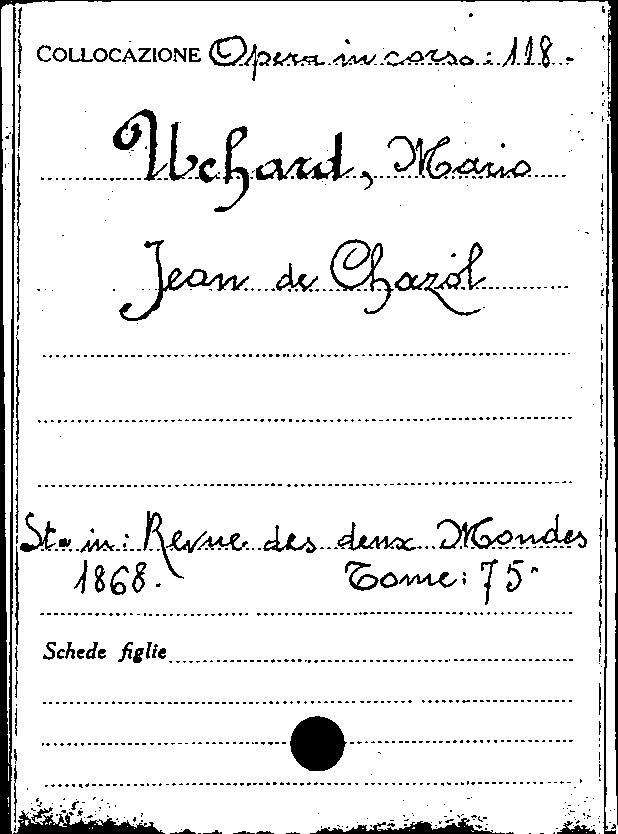 COLLOCAZIONE Opera in corso: 118.
Uchard, Mario
Jean de Chazol
Sta in: Revue des deux Mondes
1868. Tome: 75.
Schede figlie